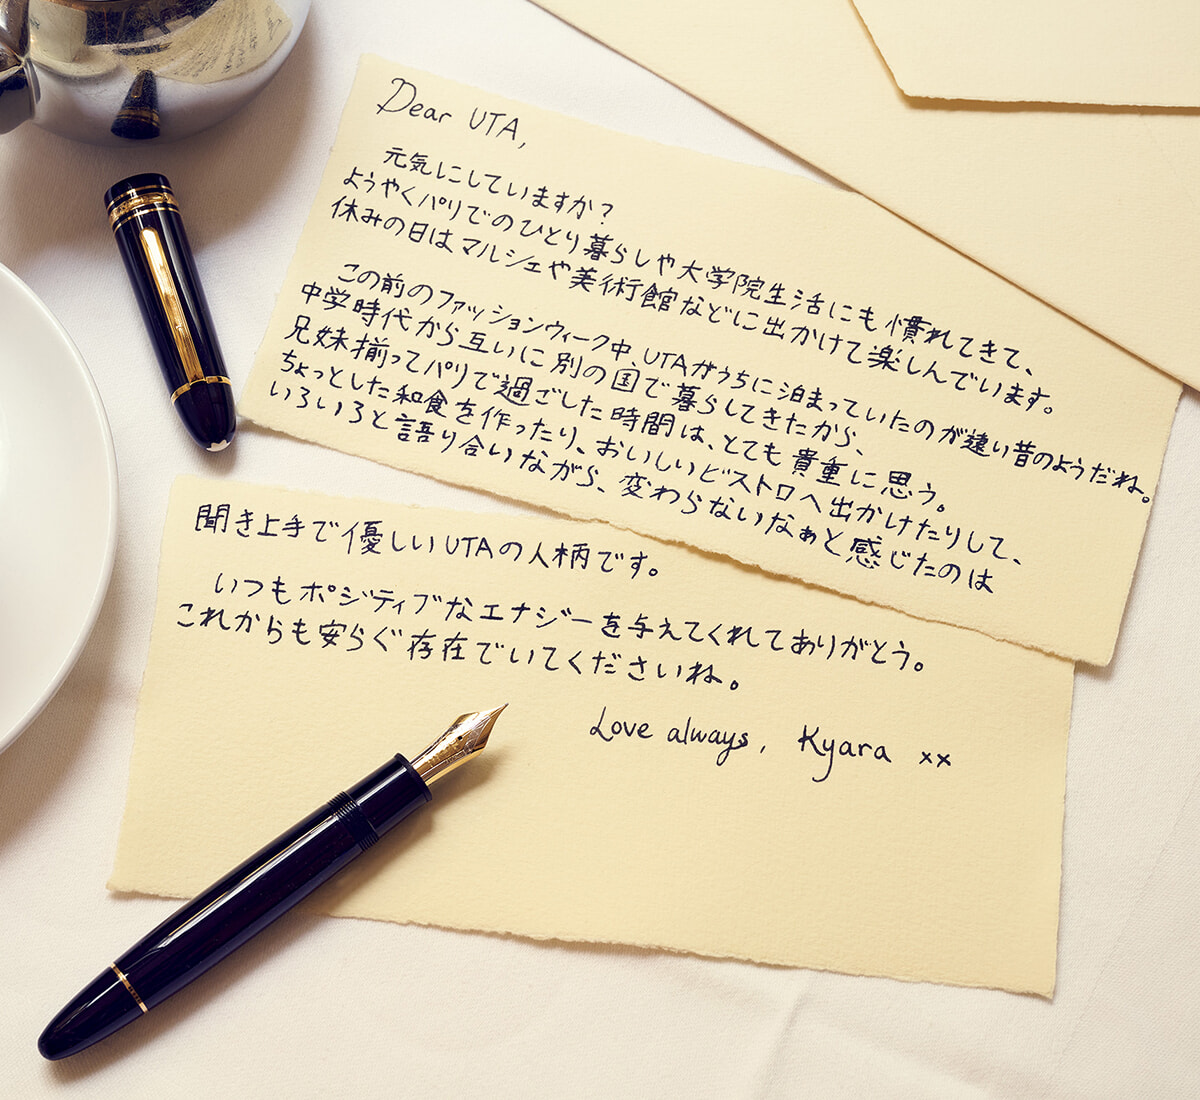 Dear UTA,
元気にしていますか？
ようやくパリでのひとり暮らしや大学院生活にも慣れてきて、
休みの日はマルシェや美術館などに出かけて楽しんでいます。
この前のファッションウィーク中、UTAがうちに泊まっていたのが遠い昔のようだね。
中学時代から互いに別の国で暮らしてきたから、
兄妹揃ってパリで過ごした時間は、とても貴重に思う。
ちょっとした和食を作ったり、おいしいビストロへ出かけたりして、
いろいろと語り合いながら、変わらないなぁと感じたのは
聞き上手で優しいUTAの人柄です。
いつもポジティブなエナジーを与えてくれてありがとう。
これからも安らぐ存在でいてくださいね。
Love always, Kyara xx